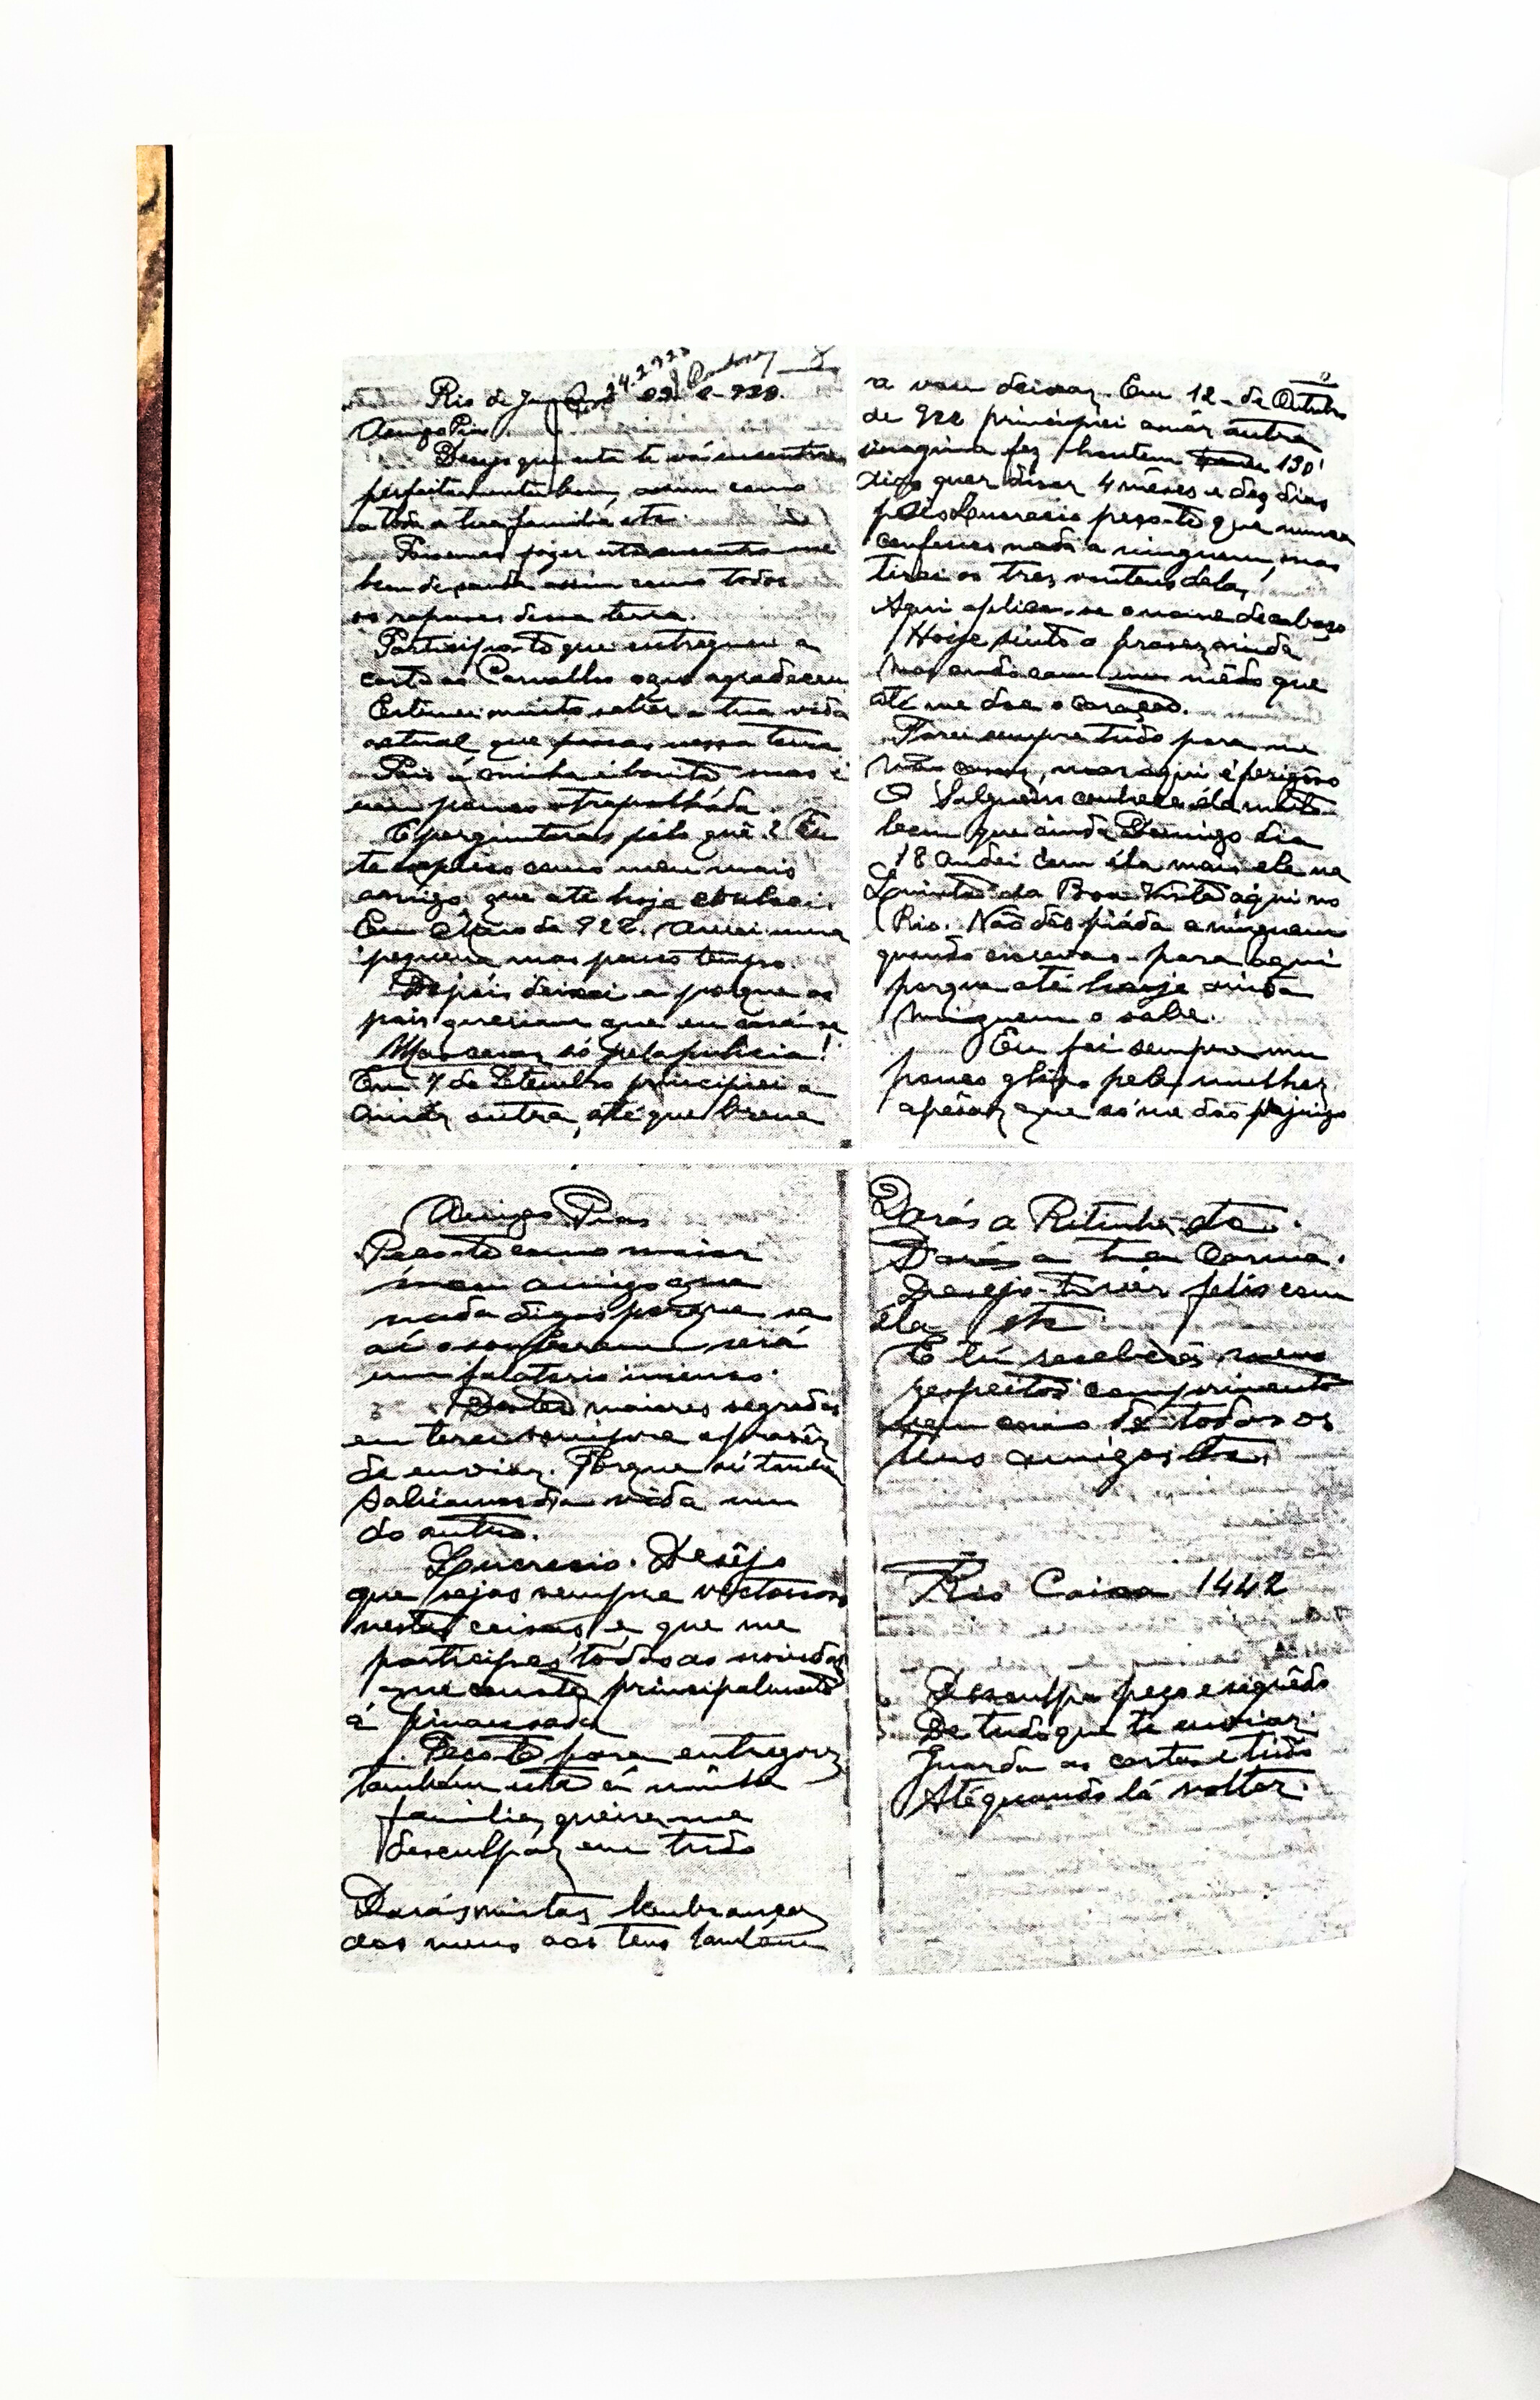 Rio de
Amigo Pias
Desejo que esta te vá encontrar
perfeitamente bem, assim como
a toda a tua familia etc.
ao fazer esta encontro me
bem de saude assim como todos
os rapases dessa terra.
Participo-te que entreguei a
carta ao Carvalho o qual agradeceu
Estimei muito saber a tua vida
actual que passas nessa terra
Pois a minha é bonita mas é
um pouco atrapalháda.
E perguntarás pélo quê? Eu
te explico como meu mais
amigo que até hoje
Em Maio de 922. Amei uma
pequena mas pouco tempo.
Depois deixei a porque os
pais queriam que eu casásse
Mas casar só pela policia!
Em 7 de Setembro principiei a
amár outra, até que breve
a vou deixar. Em 12 de Outubro
de 922 principiei amár outra
imagina fez hontem 130
digo quer diser 4 mêses e dez dias
pois Loucrecio peço-te que nunca
confesses nada a ninguem, mas
tirei os tres vintens dela,
Aqui aplica-se o nome de cabaço
Hoije sinto o praser ainda
mas ando com um mêdo que
até me doe o coração.
Farei sempre tudo para me
não casar, mas aqui é perigôso
O Salgueiro conhece éla muito
bem que ainda Domigo dia
18 andei com éla mais ele na
Quinta da Boa Vista aqui no
Rio. Não dês piáda a ninguem
quando escrevas para aqui
porque até hoije ainda
ninguem o sabe.
Eu fui sempre um
pouco pela mulher
apésar que só me dão prejuizo
Amigo Pias
Peço-te como maior
meu amigo que
nada digas porque se
ai o souberem será
um falatorio imenso.
Destes maiores segredos
eu terei sempre o prasêr
de enviar. Porque só tambem
sabiamos da vida um
do outro.
Loucrecio. Desêjo
que sejas sempre victorioso
nestas coisas e que me
participes todas as novidades
que conste principalmente
á
Peço-te para entregar
tambem esta á minha
familia, queira-me
desculpar em tudo
Darás muitas lembranças
dos meus aos teus tambem
Darás a Ritinha etc.
Darás a tua Carma.
Desejo-te vêr felis com
éla etc
E tú receberás meus
respeitos comprimento
bem como de todos os
teus amigos etc.
Rio Caixa 1442
Desculpa peço e segrêdo
De tudo que te enviar
Guarda as cartas e tudo
Até quando lá voltar.